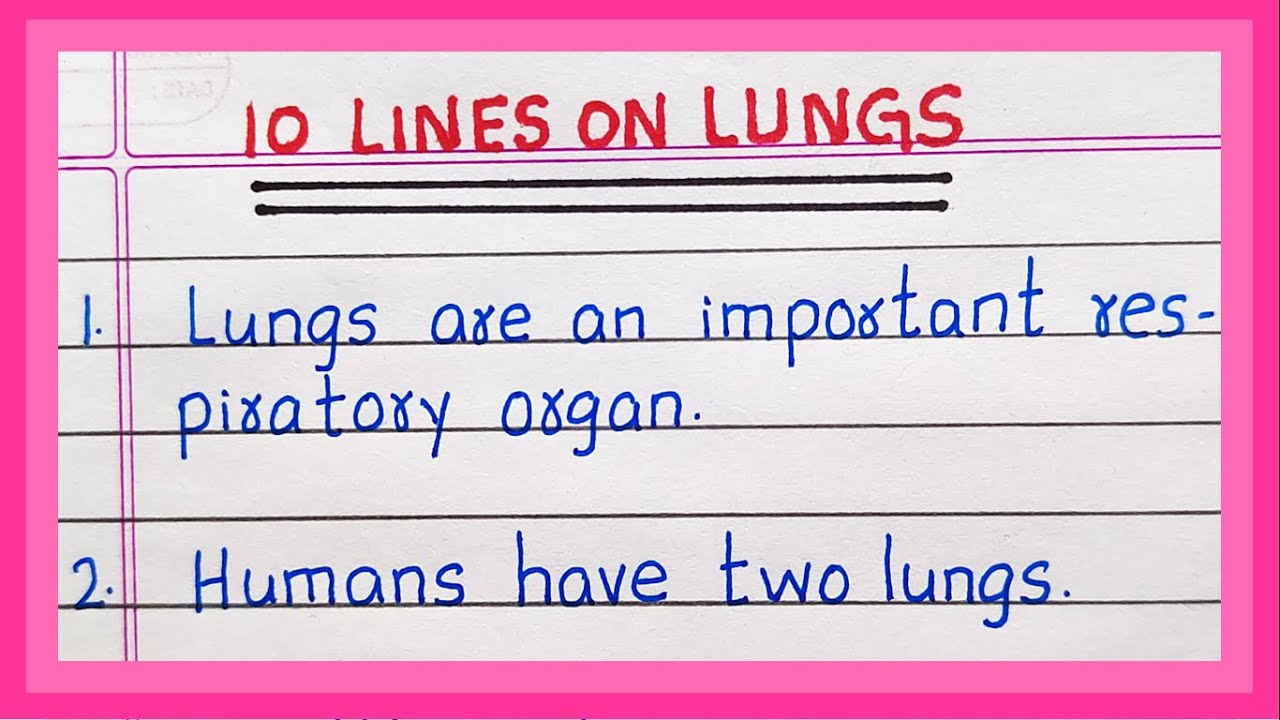 10 LINES ON LUNGS
1. Lungs are an important res-
piratory organ.
2. Humans have two lungs.